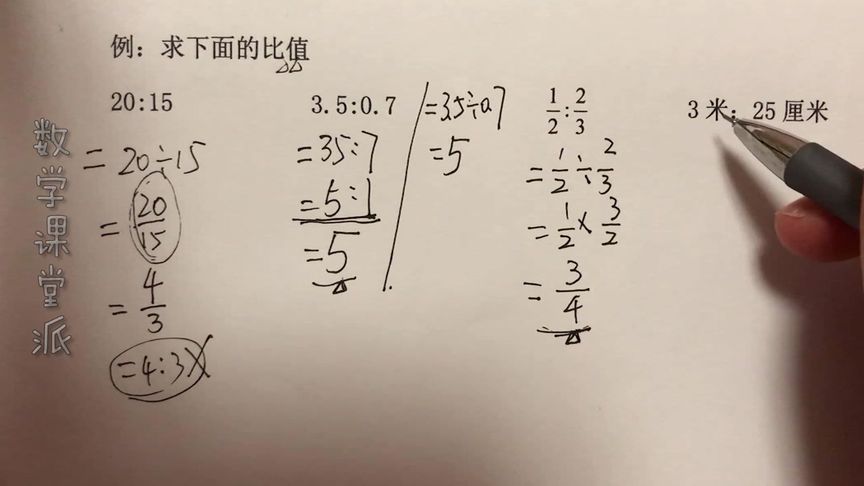 例：求下面的比值
20:15
= 20÷15
= 20/15
= 4/3
=4:3X
3.5:0.7
=35:7
=5:1
=5
=3.5÷0.7
=5
1/2:2/3
=1/2÷2/3
=1/2×3/2
=3/4
3米：25厘米
数学课堂派